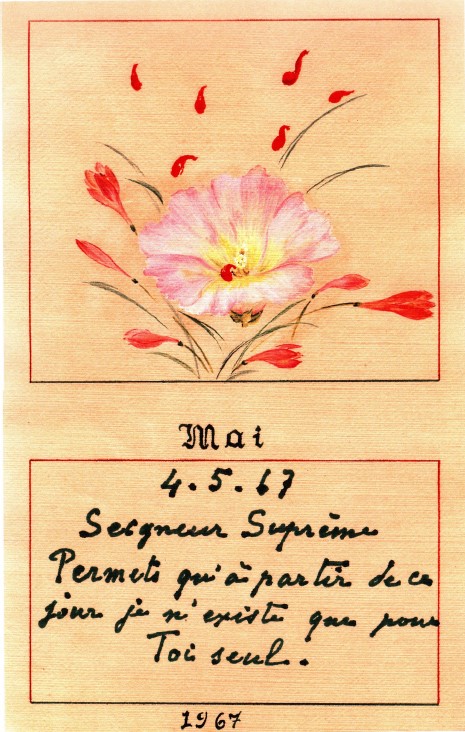 Mai
4.5.67
Seigneur Suprême
Permets qu'à partir de ce
jour je n'existe que pour
Toi seul.
1967